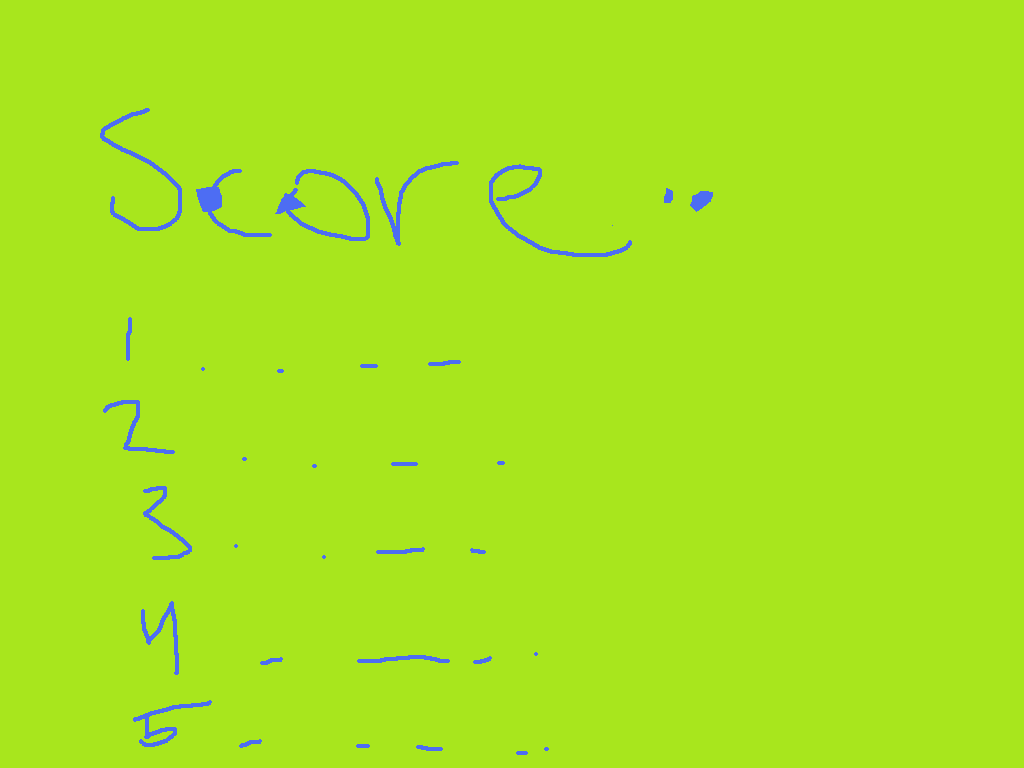 Score ..
1 . . _ _
2 . . _ .
3 . . _ _
4 _ _ _ .
5 _ _ _ _ .